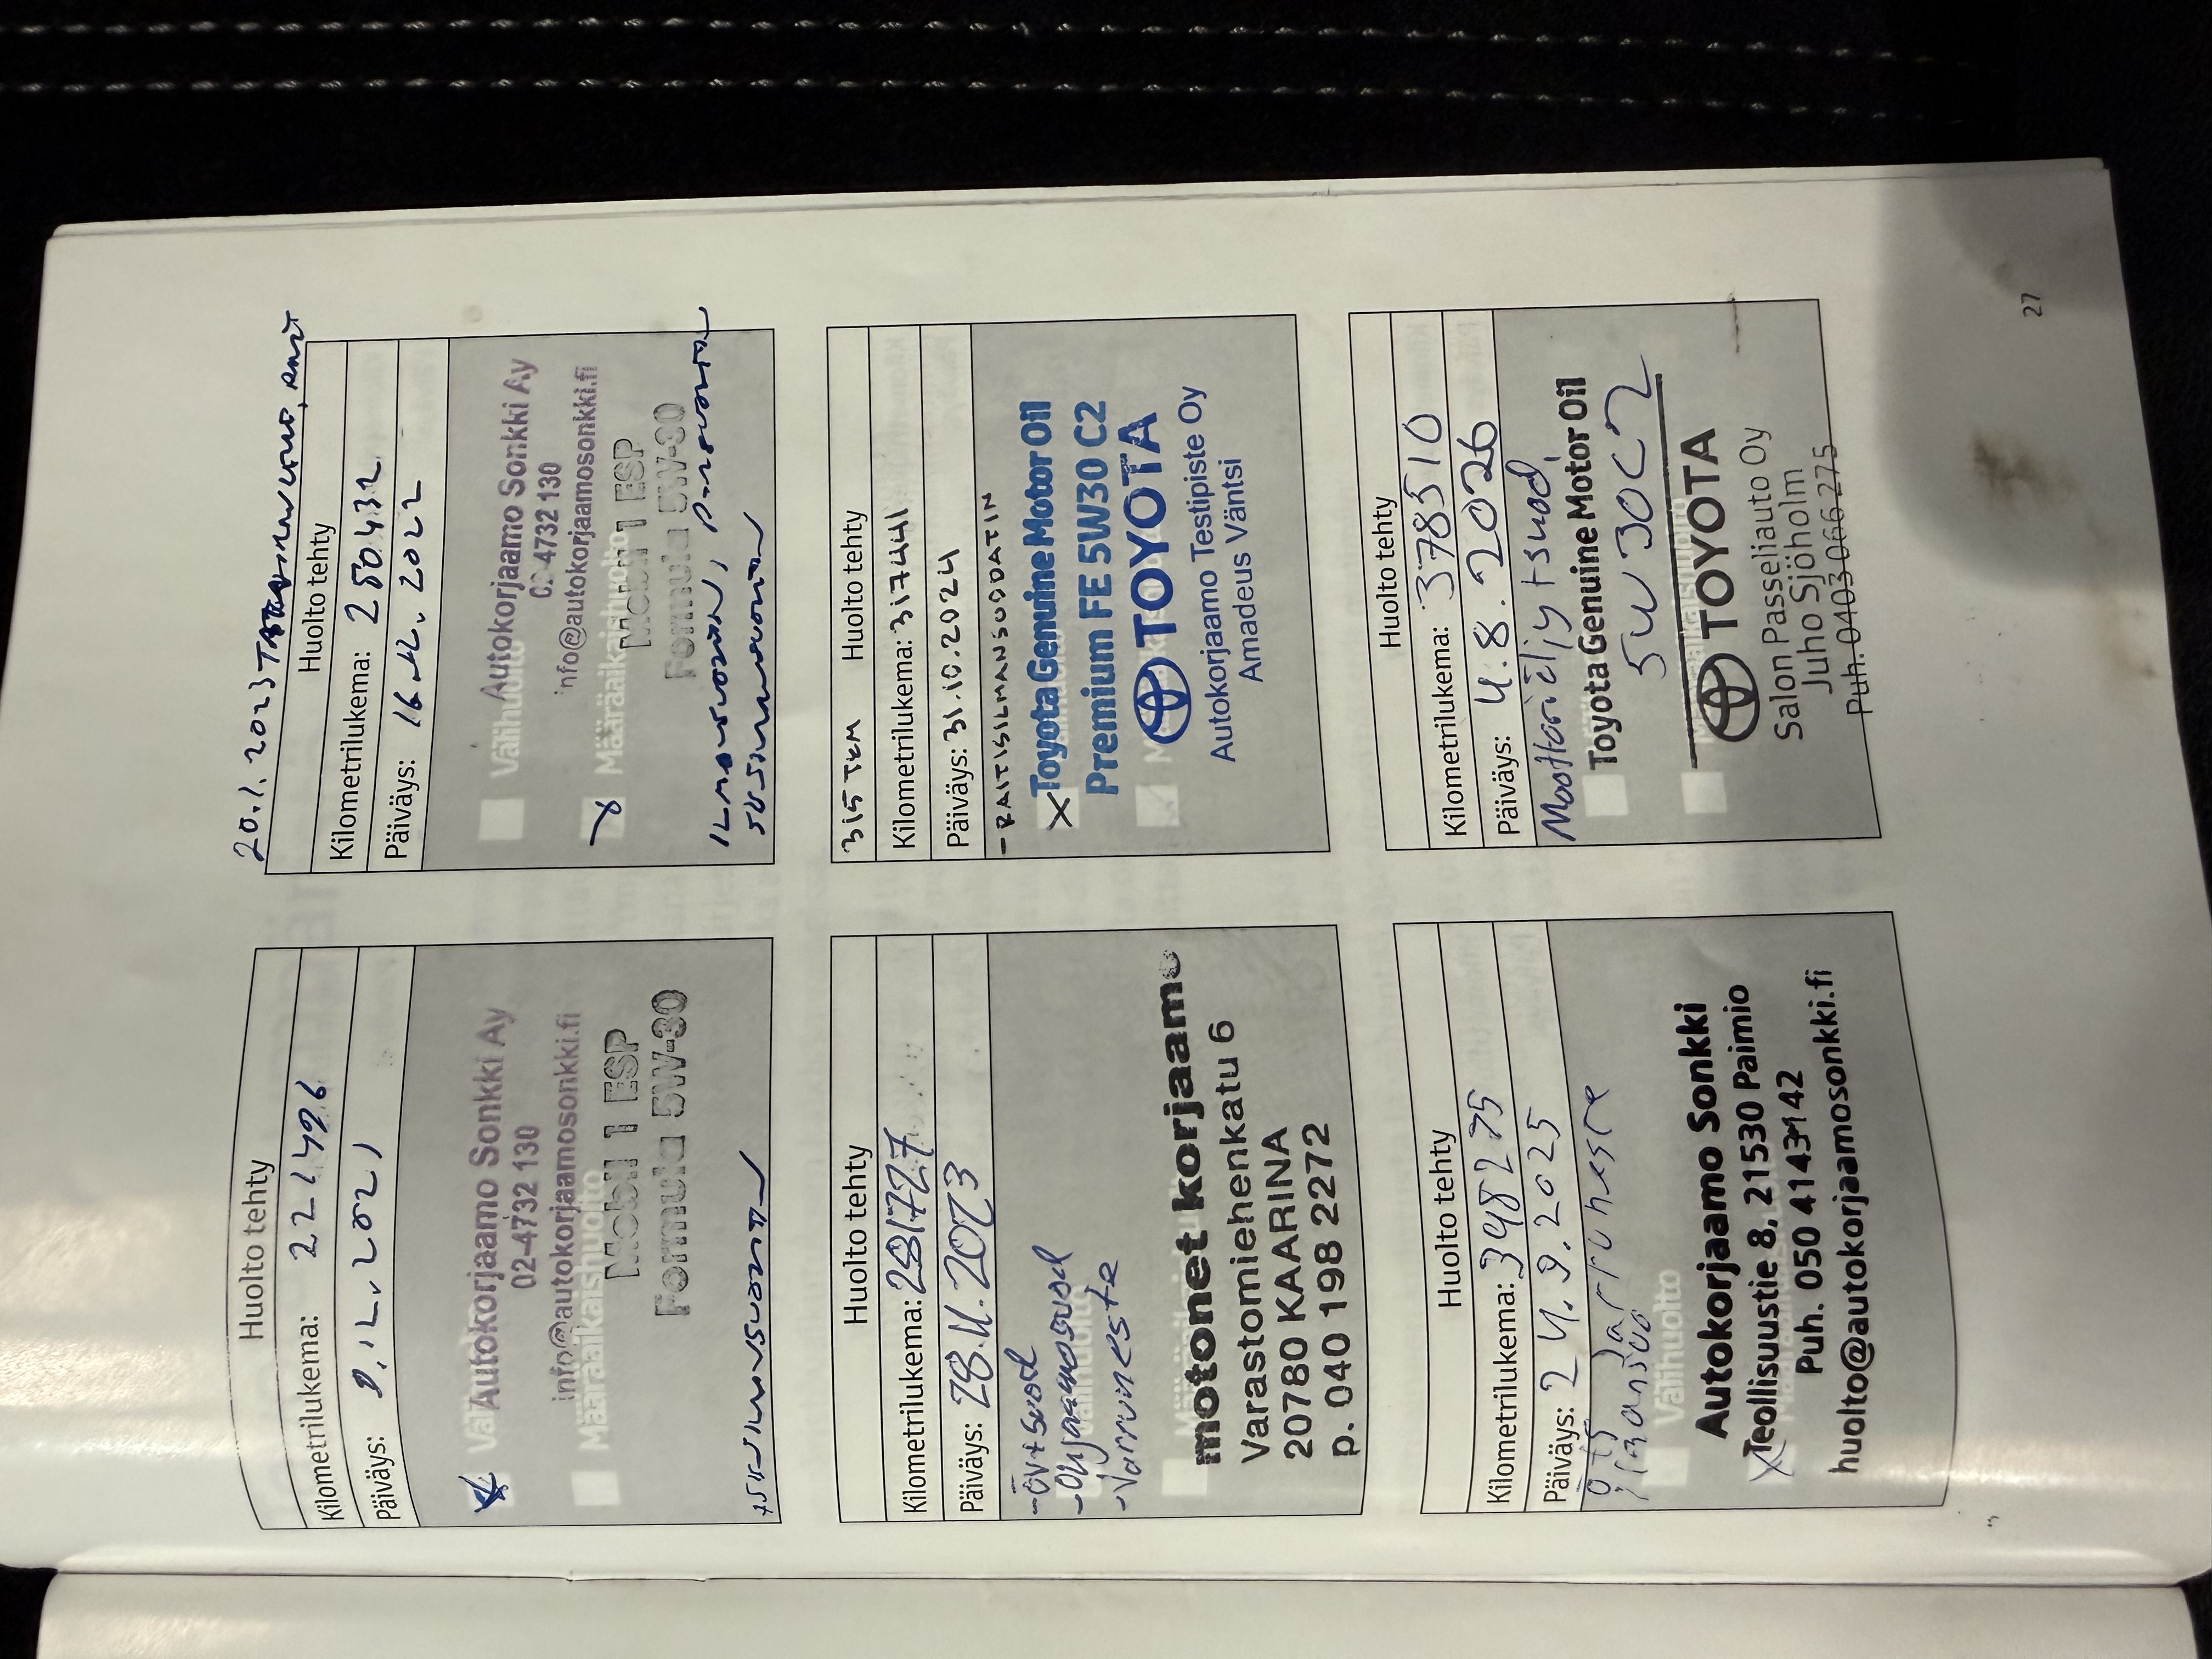 Huolto tehty
Kilometrilukema: 221496
Päiväys: 9.12.2021
Välihuolto
Autokorjaamo Sonkki Ay
02-4732 130
info@autokorjaamosonkki.fi
Määräaikaishuolto
Mobil 1 ESP
Formula 5W-30
20.1.2023
Huolto tehty
Kilometrilukema: 250432
Päiväys: 16.12.2022
Autokorjaamo Sonkki Ay
Välihuolto
02-4732 130
info@autokorjaamosonkki.fi
Määräaikaishuolto
Mobil 1 ESP
Formula 5W-30
Huolto tehty
Kilometrilukema: 281727
Päiväys: 28.11.2023
-öv+suod
-Ohjaamosuod
-Jarruneste
motonet korjaamo
Varastomiehenkatu 6
20780 KAARINA
p. 040 198 2272
315 TKM Huolto tehty
Kilometrilukema: 317441
Päiväys: 31.10.2024
- RAITISILMANSUODATIN
Toyota Genuine Motor Oil
Premium FE 5W30 C2
TOYOTA
Autokorjaamo Testipiste Oy
Amadeus Väntsi
Huolto tehty
Kilometrilukema: 348275
Päiväys: 24.9.2025
Jarruneste
Välihuolto
Autokorjaamo Sonkki
Teollisuustie 8, 21530 Paimio
Puh. 050 4143142
huolto@autokorjaamosonkki.fi
Huolto tehty
Kilometrilukema: 378510
Päiväys: 4.8.2026
Moottoriöljy + suod.
Toyota Genuine Motor Oil
5W30C2
TOYOTA
Salon Passeliauto Oy
Juho Sjöholm
Puh. 0403 066 275
27